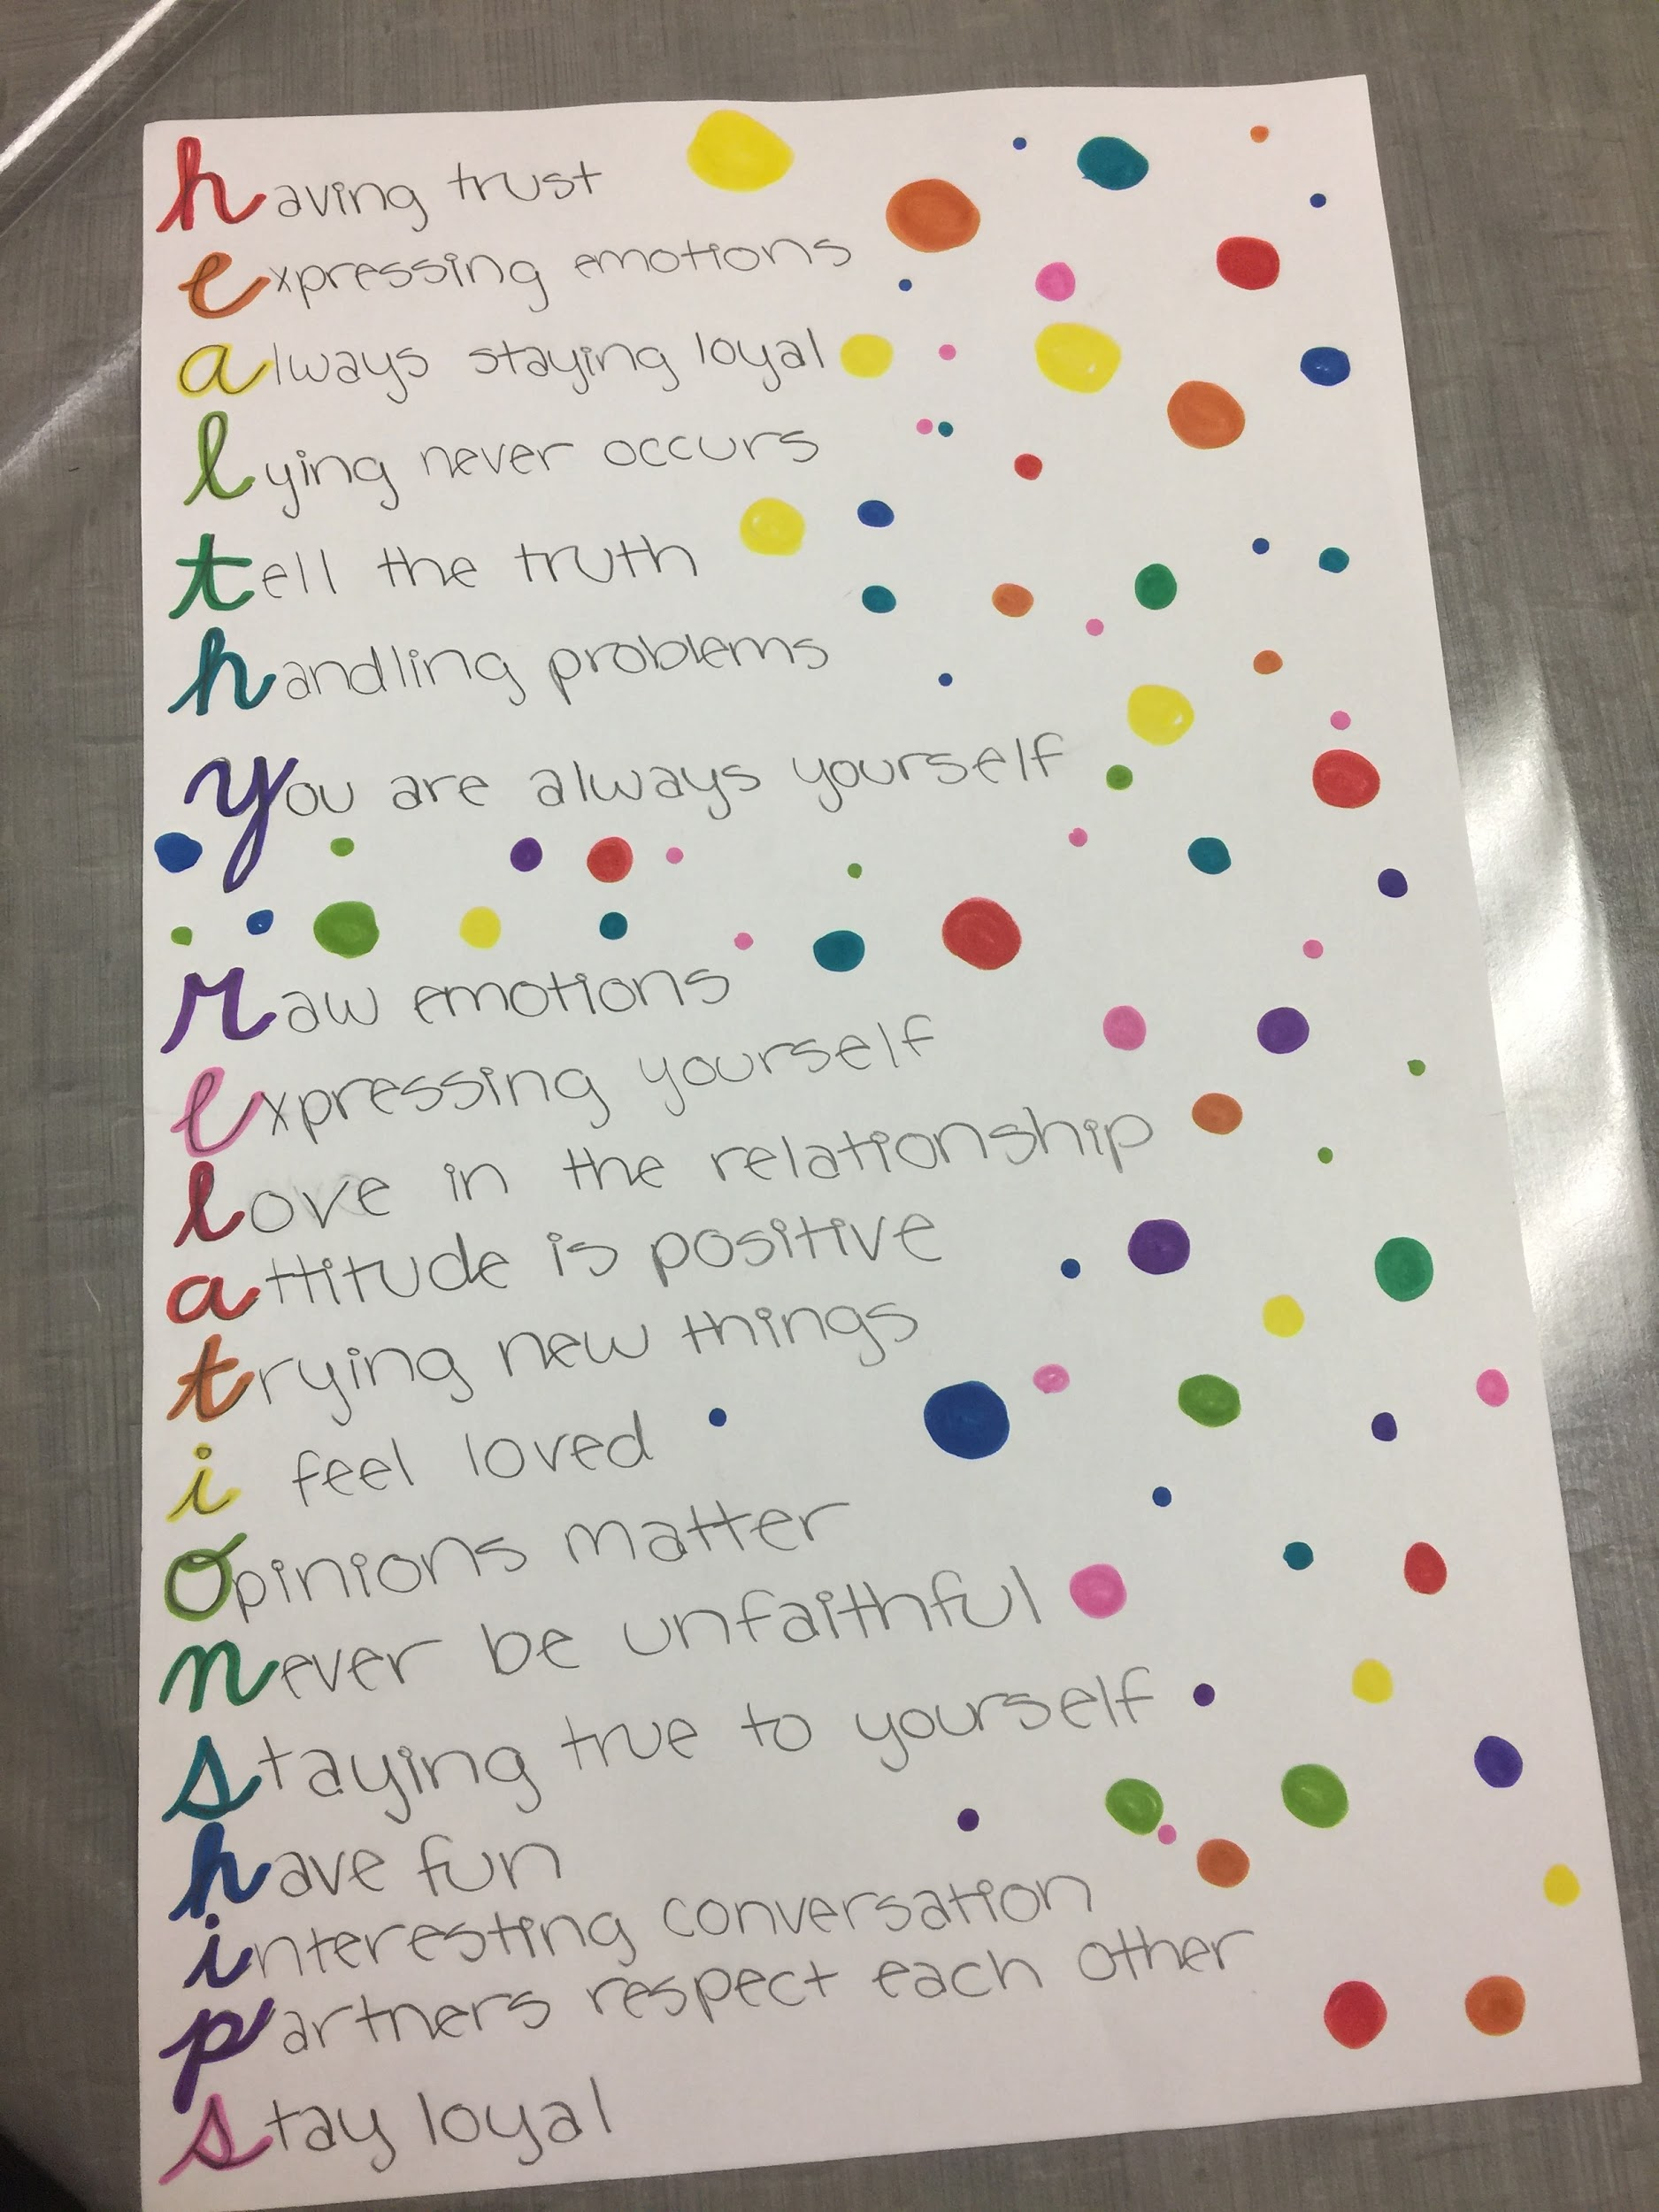 having trust
expressing emotions
always staying loyal
lying never occurs
tell the truth
handling problems
you are always yourself
raw emotions
expressing yourself
love in the relationship
attitude is positive
trying new things
i feel loved
opinions matter
never be unfaithful
staying true to yourself
have fun
interesting conversation
partners respect each other
stay loyal